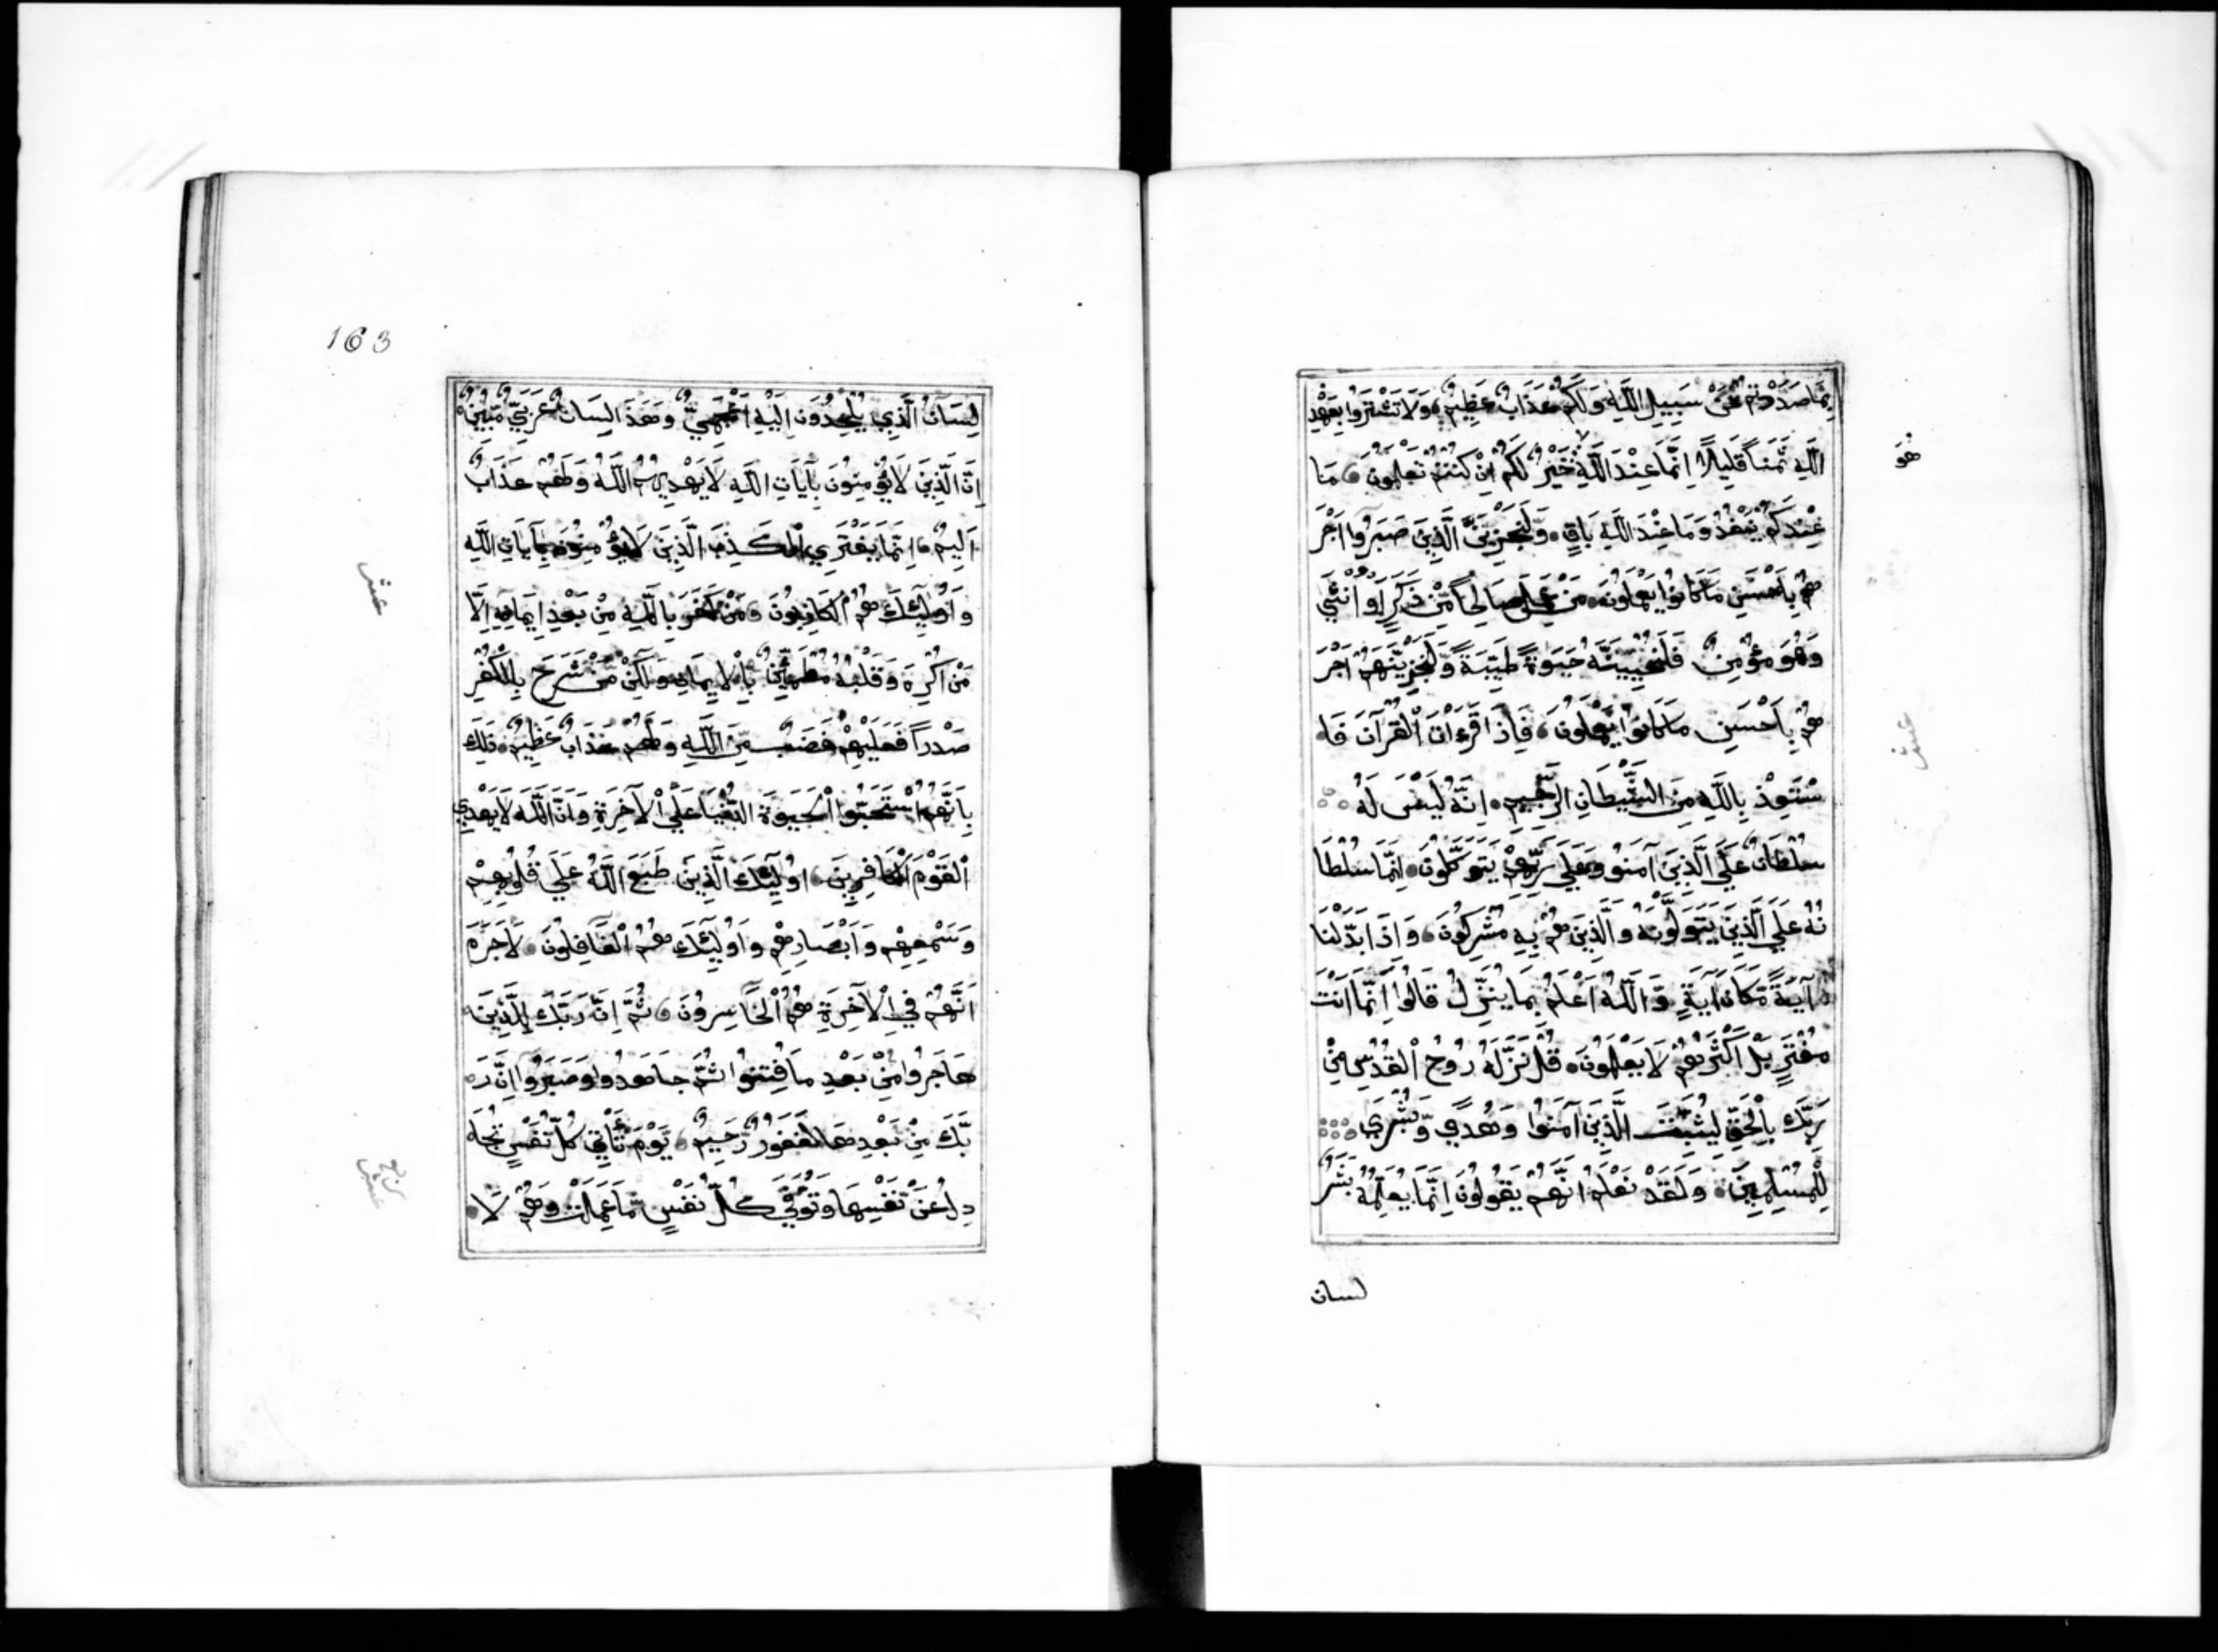 بِمَا صَدَدْتُمْ عَنْ سَبِيلِ اللَّهِ وَلَكُمْ عَذَابٌ عَظِيمٌ وَلَا تَشْتَرُوا بِعَهْدِ
اللَّهِ ثَمَنًا قَلِيلًا إِنَّمَا عِنْدَ اللَّهِ خَيْرٌ لَكُمْ إِنْ كُنْتُمْ تَعْلَمُونَ مَا
هُوَ
عِنْدَكُمْ يَنْفَدُ وَمَا عِنْدَ اللَّهِ بَاقٍ وَلَنَجْزِيَنَّ الَّذِينَ صَبَرُوا أَجْرَ
هُمْ بِأَحْسَنِ مَا كَانُوا يَعْمَلُونَ مَنْ عَمِلَ صَالِحًا مِّنْ ذَكَرٍ أَوْ أُنْثَي
وَهُوَ مُؤْمِنٌ فَلَنُحْيِيَنَّهُ حَيَوةً طَيِّبَةً وَلَنَجْزِيَنَّهُمْ أَجْرَ
هُمْ بِأَحْسَنِ مَا كَانُوا يَعْمَلُونَ فَإِذَا قَرَءْتَ الْقُرْآنَ فَا
عشر
سْتَعِذْ بِاللَّهِ مِنَ الشَّيْطَانِ الرَّجِيمِ إِنَّهُ لَيْسَ لَهُ
سُلْطَانٌ عَلَي الَّذِينَ آمَنُو وَعَلَي رَبِّهِمْ يَتَوَكَّلُونَ إِنَّمَا سُلْطَا
نُهُ عَلَي الَّذِينَ يَتَوَلَّوْنَهُ وَالَّذِينَ هُمْ بِهِ مُشْرِكُونَ وَإِذَا بَدَّلْنَا
آيَةً مَكَانَ آيَةٍ وَاللَّهُ أَعْلَمُ بِمَا يُنَزِّلُ قَالُوا إِنَّمَا أَنْتَ
مُفْتَرٍ بَلْ أَكْثَرُهُمْ لَا يَعْلَمُونَ قُلْ نَزَّلَهُ رُوحُ الْقُدُسِ مِنْ
رَبِّكَ بِالْحَقِّ لِيُثَبِّتَ الَّذِينَ آمَنُوا وَهُدًي وَبُشْرَي
لِلْمُسْلِمِينَ وَلَقَدْ نَعْلَمُ أَنَّهُمْ يَقُولُونَ إِنَّمَا يُعَلِّمُهُ بَشَرٌ
لسان
163
لِسَانُ الَّذِي يُلْحِدُونَ إِلَيْهِ أَعْجَمِيٌّ وَهَذَا لِسَانٌ عَرَبِيٌّ مُّبِينٌ
إِنَّ الَّذِينَ لَا يُؤْمِنُونَ بِآيَاتِ اللَّهِ لَا يَهْدِيهِمُ اللَّهُ وَلَهُمْ عَذَابٌ
أَلِيمٌ إِنَّمَا يَفْتَرِي الْكَذِبَ الَّذِينَ لَا يُؤْمِنُونَ بِآيَاتِ اللَّهِ
عشر
وَأُولَئِكَ هُمُ الْكَاذِبُونَ مَنْ كَفَرَ بِاللَّهِ مِنْ بَعْدِ إِيمَانِهِ إِلَّا
مَنْ أُكْرِهَ وَقَلْبُهُ مُطْمَئِنٌّ بِالْإِيمَانِ وَلَكِنْ مَّنْ شَرَحَ بِالْكُفْرِ
صَدْرًا فَعَلَيْهِمْ غَضَبٌ مِنَ اللَّهِ وَلَهُمْ عَذَابٌ عَظِيمٌ ذَلِكَ
بِأَنَّهُمُ اسْتَحَبُّوا الْحَيَوةَ الدُّنْيَا عَلَي الْآخِرَةِ وَأَنَّ اللَّهَ لَا يَهْدِي
الْقَوْمَ الْكَافِرِينَ أُولَئِكَ الَّذِينَ طَبَعَ اللَّهُ عَلَي قُلُوبِهِمْ
وَسَمْعِهِمْ وَأَبْصَارِهِمْ وَأُولَئِكَ هُمُ الْغَافِلُونَ لَا جَرَمَ
أَنَّهُمْ فِي الْآخِرَةِ هُمُ الْخَاسِرُونَ ثُمَّ إِنَّ رَبَّكَ لِلَّذِينَ
هَاجَرُوا مِنْ بَعْدِ مَا فُتِنُوا ثُمَّ جَاهَدُوا وَصَبَرُوا إِنَّ رَ
بَّكَ مِنْ بَعْدِهَا لَغَفُورٌ رَّحِيمٌ يَوْمَ تَأْتِي كُلُّ نَفْسٍ تُجَا
دِلُ عَنْ نَفْسِهَا وَتُوَفَّي كُلُّ نَفْسٍ مَّا عَمِلَتْ وَهُمْ لَا